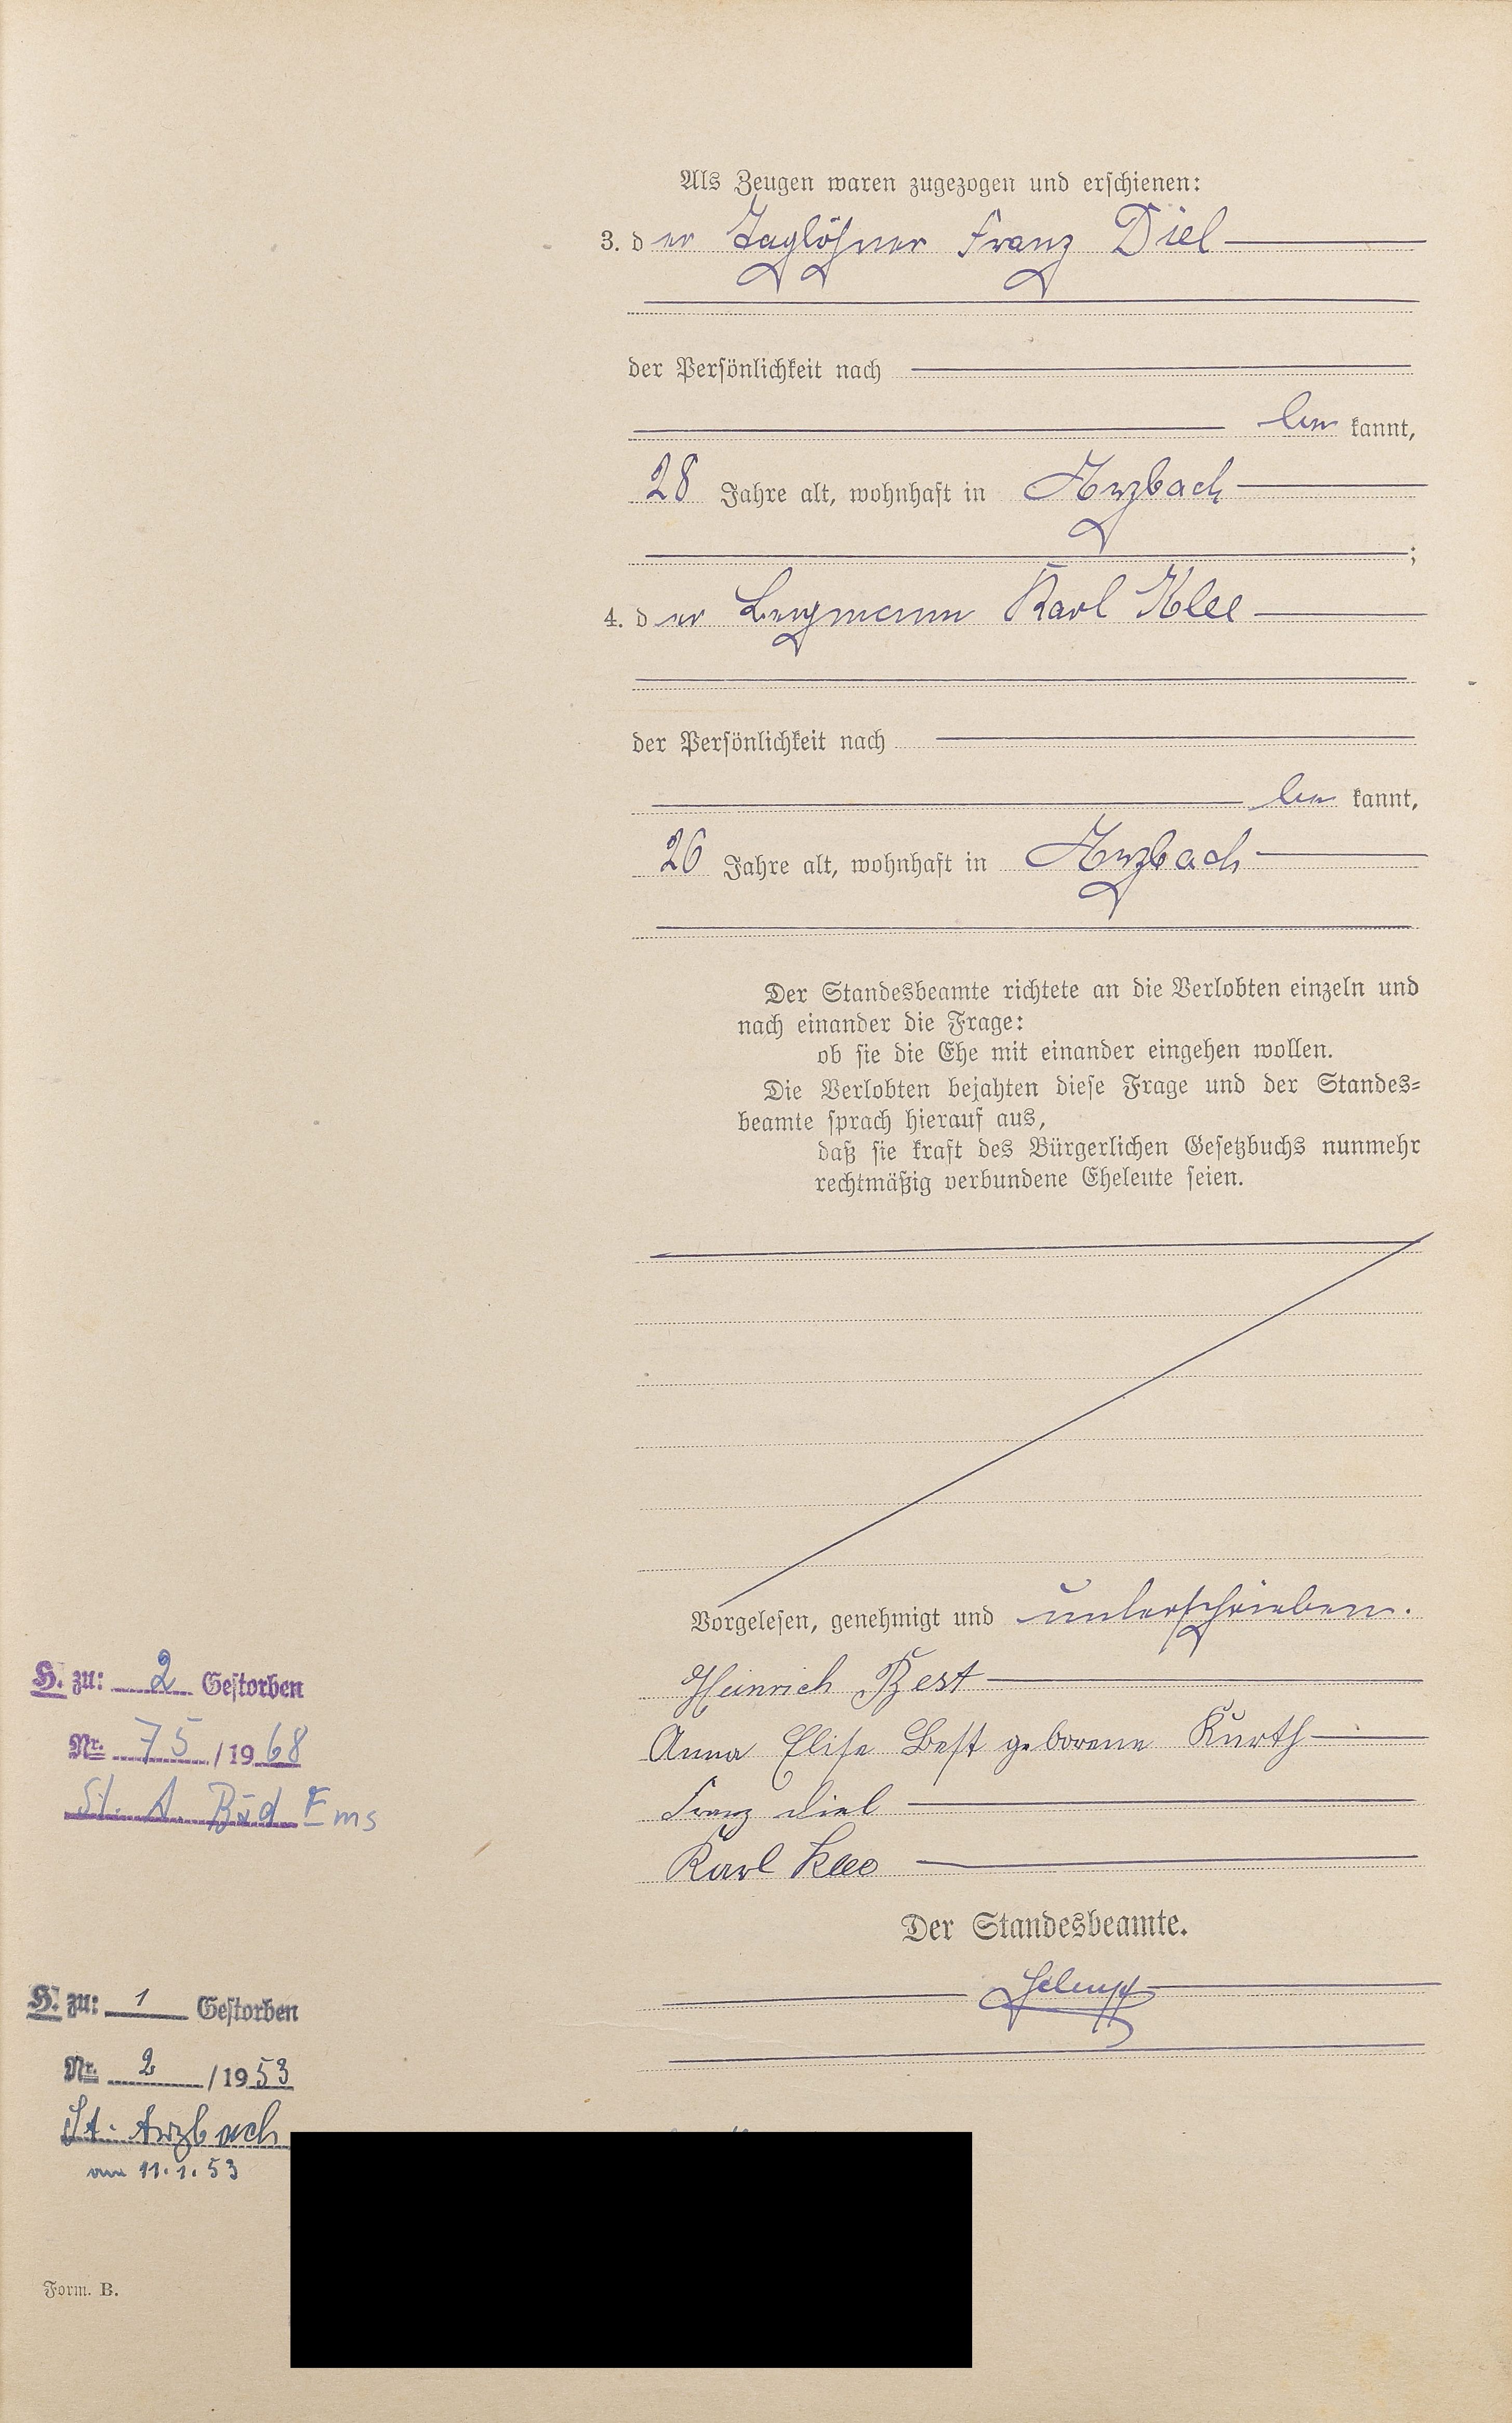 Als Zeugen waren zugezogen und erschienen:
3. der Taglöhner Franz Diel
der Persönlichkeit nach
be kannt,
28 Jahre alt, wohnhaft in Arzbach
;
4. der Bergmann Karl Klee
der Persönlichkeit nach
be kannt,
26 Jahre alt, wohnhaft in Arzbach
Der Standesbeamte richtete an die Verlobten einzeln und
nach einander die Frage:
ob sie die Ehe mit einander eingehen wollen.
Die Verlobten bejahten diese Frage und der Standes-
beamte sprach hierauf aus,
daß sie kraft des Bürgerlichen Gesetzbuchs nunmehr
rechtmäßig verbundene Eheleute seien.
Vorgelesen, genehmigt und unterschrieben.
Heinrich Best
Anna Elise Best geborene Kurth
Franz Diel
Karl Klee
Der Standesbeamte.
H. zu: 2 Gestorben
Nr. 75 / 1968
St. A. Bad Ems
H. zu: 1 Gestorben
Nr. 2 / 1953
St. Arzbach
am 11.1.53
Form. B.